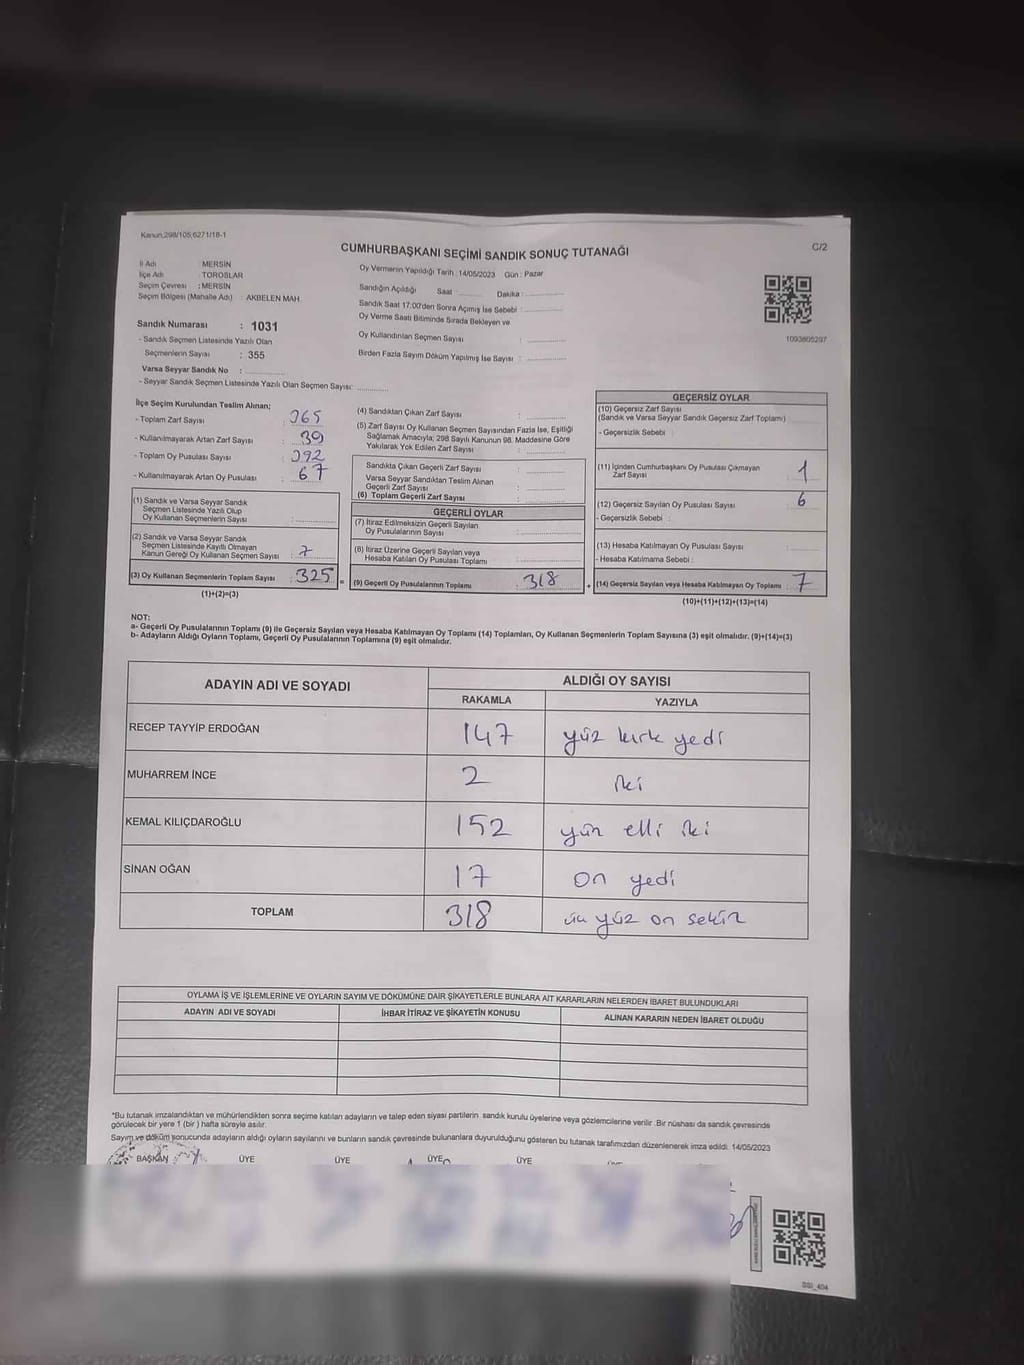 Kanun,298/105;6271/18-1
C/2
CUMHURBAŞKANI SEÇİMİ SANDIK SONUÇ TUTANAĞI
İl Adı : MERSİN
İlçe Adı : TOROSLAR
Seçim Çevresi : MERSİN
Seçim Bölgesi (Mahalle Adı) : AKBELEN MAH.
Sandık Numarası : 1031
- Sandık Seçmen Listesinde Yazılı Olan
Seçmenlerin Sayısı : 355
Varsa Seyyar Sandık No :
- Seyyar Sandık Seçmen Listesinde Yazılı Olan Seçmen Sayısı:
Oy Vermenin Yapıldığı Tarih : 14/05/2023 Gün : Pazar
Sandığın Açıldığı Saat : Dakika :
Sandık Saat 17:00'den Sonra Açımış İse Sebebi :
Oy Verme Saati Bitiminde Sırada Bekleyen ve
Oy Kullandırılan Seçmen Sayısı :
Birden Fazla Sayım Döküm Yapılmış İse Sayısı :
1093605297
İlçe Seçim Kurulundan Teslim Alınan;
- Toplam Zarf Sayısı : 365
- Kullanılmayarak Artan Zarf Sayısı : 39
- Toplam Oy Pusulası Sayısı : 392
- Kullanılmayarak Artan Oy Pusulası : 67
(1) Sandık ve Varsa Seyyar Sandık
Seçmen Listesinde Yazılı Olup
Oy Kullanan Seçmenlerin Sayısı :
(2) Sandık ve Varsa Seyyar Sandık
Seçmen Listesinde Kayıtlı Olmayan
Kanun Gereği Oy Kullanan Seçmen Sayısı : 7
(3) Oy Kullanan Seçmenlerin Toplam Sayısı : 325 =
(1)+(2)=(3)
(4) Sandıktan Çıkan Zarf Sayısı :
(5) Zarf Sayısı Oy Kullanan Seçmen Sayısından Fazla İse, Eşitliği
Sağlamak Amacıyla; 298 Sayılı Kanunun 98. Maddesine Göre
Yakılarak Yok Edilen Zarf Sayısı :
Sandıkta Çıkan Geçerli Zarf Sayısı :
Varsa Seyyar Sandıktan Teslim Alınan
Geçerli Zarf Sayısı :
(6) Toplam Geçerli Zarf Sayısı :
GEÇERLİ OYLAR
(7) İtiraz Edilmeksizin Geçerli Sayılan
Oy Pusulalarının Sayısı :
(8) İtiraz Üzerine Geçerli Sayılan veya
Hesaba Katılan Oy Pusulası Toplamı :
(9) Geçerli Oy Pusulalarının Toplamı : 318 +
GEÇERSİZ OYLAR
(10) Geçersiz Zarf Sayısı
(Sandık ve Varsa Seyyar Sandık Geçersiz Zarf Toplamı)
- Geçersizlik Sebebi :
(11) İçinden Cumhurbaşkanı Oy Pusulası Çıkmayan
Zarf Sayısı : 1
(12) Geçersiz Sayılan Oy Pusulası Sayısı : 6
- Geçersizlik Sebebi :
(13) Hesaba Katılmayan Oy Pusulası Sayısı :
- Hesaba Katılmama Sebebi :
(14) Geçersiz Sayılan veya Hesaba Katılmayan Oy Toplamı : 7
(10)+(11)+(12)+(13)=(14)
NOT:
a- Geçerli Oy Pusulalarının Toplamı (9) ile Geçersiz Sayılan veya Hesaba Katılmayan Oy Toplamı (14) Toplamları, Oy Kullanan Seçmenlerin Toplam Sayısına (3) eşit olmalıdır. (9)+(14)=(3)
b- Adayların Aldığı Oyların Toplamı, Geçerli Oy Pusulalarının Toplamına (9) eşit olmalıdır.
ADAYIN ADI VE SOYADI
ALDIĞI OY SAYISI
RAKAMLA YAZIYLA
RECEP TAYYİP ERDOĞAN 147 yüz kırk yedi
MUHARREM İNCE 2 iki
KEMAL KILIÇDAROĞLU 152 yüz elli iki
SİNAN OĞAN 17 on yedi
TOPLAM 318 üç yüz on sekiz
OYLAMA İŞ VE İŞLEMLERİNE VE OYLARIN SAYIM VE DÖKÜMÜNE DAİR ŞİKAYETLERLE BUNLARA AİT KARARLARIN NELERDEN İBARET BULUNDUKLARI
ADAYIN ADI VE SOYADI İHBAR İTİRAZ VE ŞİKAYETİN KONUSU ALINAN KARARIN NEDEN İBARET OLDUĞU
*Bu tutanak imzalandıktan ve mühürlendikten sonra seçime katılan adayların ve talep eden siyasi partilerin sandık kurulu üyelerine veya gözlemcilerine verilir. Bir nüshası da sandık çevresinde
görülecek bir yere 1 (bir ) hafta süreyle asılır.
Sayım ve döküm sonucunda adayların aldığı oyların sayılarını ve bunların sandık çevresinde bulunanlara duyurulduğunu gösteren bu tutanak tarafımızdan düzenlenerek imza edildi. 14/05/2023
BAŞKAN ÜYE ÜYE ÜYE ÜYE